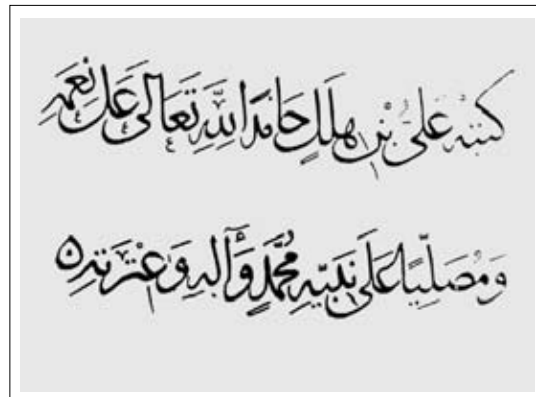 كَتَبَهُ عَلِىُّ بْنُ هِلَلٍ حَامِدًا لِلّٰهِ تَعَالَى عَلَى نِعَمِهِ
وَمُصَلِّيًا عَلَى نَبِيِّهِ مُحَمَّدٍ وَآلِهِ وَعِتْرَتِهِ